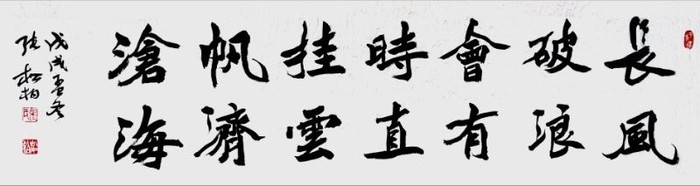 長風
破浪
會有
時直
挂雲
帆濟
滄海
戊戌孟冬
张松柏